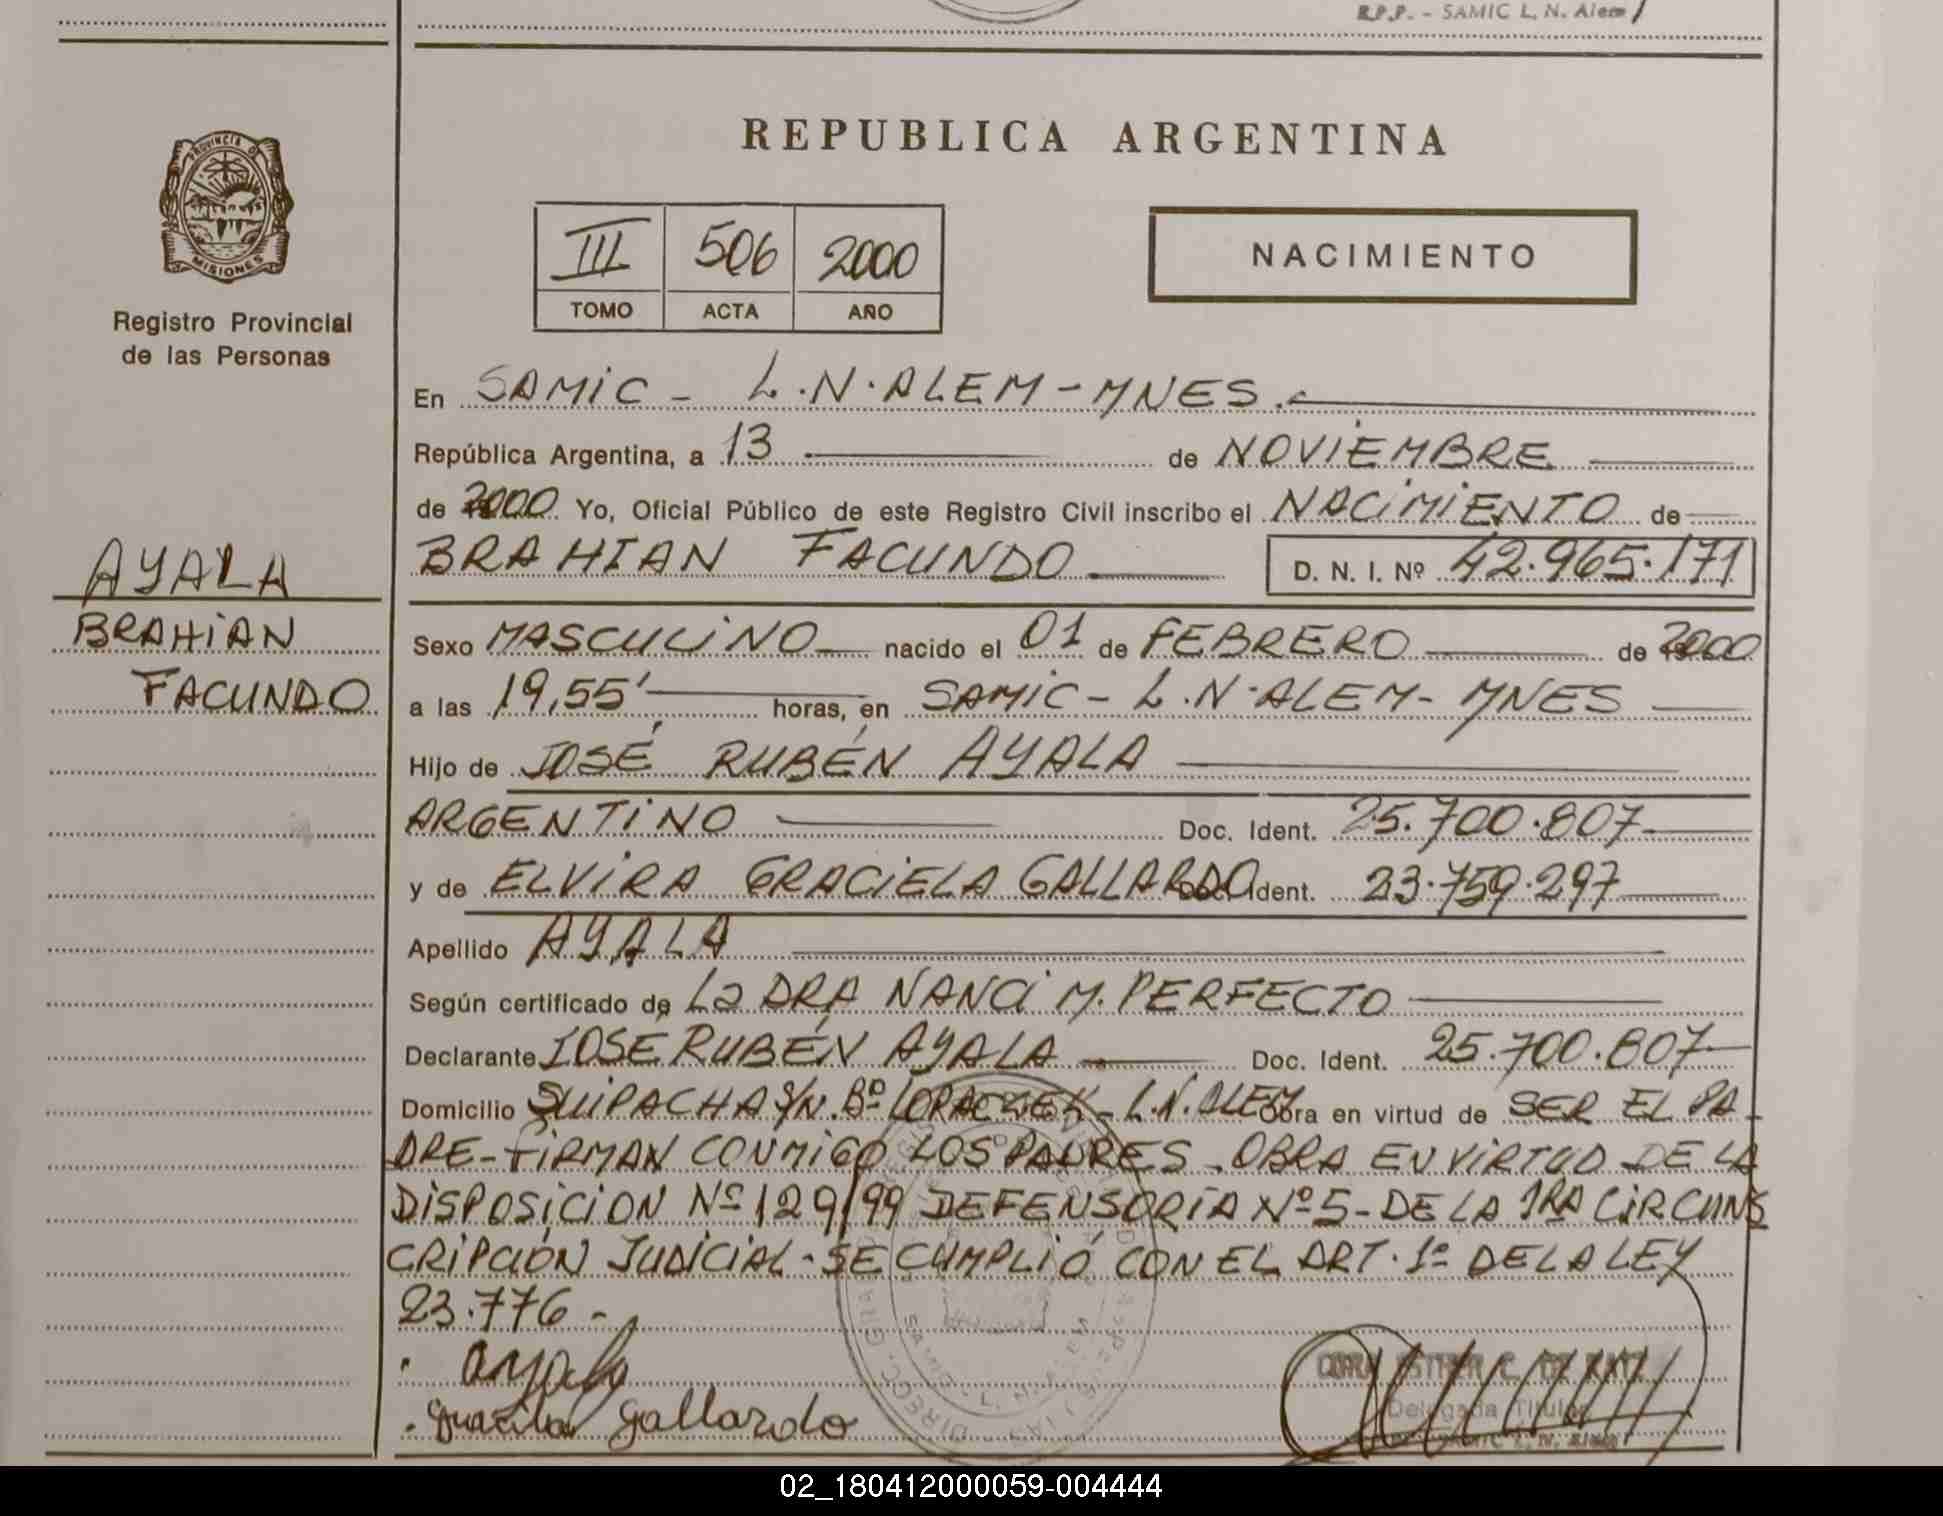 R.P.P. - SAMIC L. N. Alem
REPUBLICA ARGENTINA
PROVINCIA DE
MISIONES
Registro Provincial
de las Personas
III 506 2000
TOMO ACTA AÑO
NACIMIENTO
En SAMIC - L.N. ALEM - MNES.
República Argentina, a 13 de NOVIEMBRE
de 2000 Yo, Oficial Público de este Registro Civil inscribo el NACIMIENTO de
BRAHIAN FACUNDO D. N. I. Nº 42.965.171
AYALA
BRAHIAN
FACUNDO
Sexo MASCULINO nacido el 01 de FEBRERO de 2000
a las 19,55' horas, en SAMIC - L.N. ALEM - MNES
Hijo de JOSÉ RUBÉN AYALA
ARGENTINO Doc. Ident. 25.700.807
y de ELVIRA GRACIELA GALLARDO Doc. Ident. 23.759.297
Apellido AYALA
Según certificado de La DRA NANCI M. PERFECTO
Declarante JOSÉ RUBÉN AYALA Doc. Ident. 25.700.807
Domicilio SUIPACHA S/N. Bº - L.N. ALEM Obra en virtud de SER EL PA
DRE - FIRMAN CONMIGO LOS PADRES. OBRA EN VIRTUD DE LA
DISPOSICION Nº 129/99 DEFENSORÍA Nº 5 - DE LA 1RA CIRCUNS
CRIPCIÓN JUDICIAL - SE CUMPLIÓ CON EL ART. 1º DE LA LEY
23.776 -
Ayala
Graciela Gallardo
Delegada Titular
SAMIC L. N. Alem
02_180412000059-004444